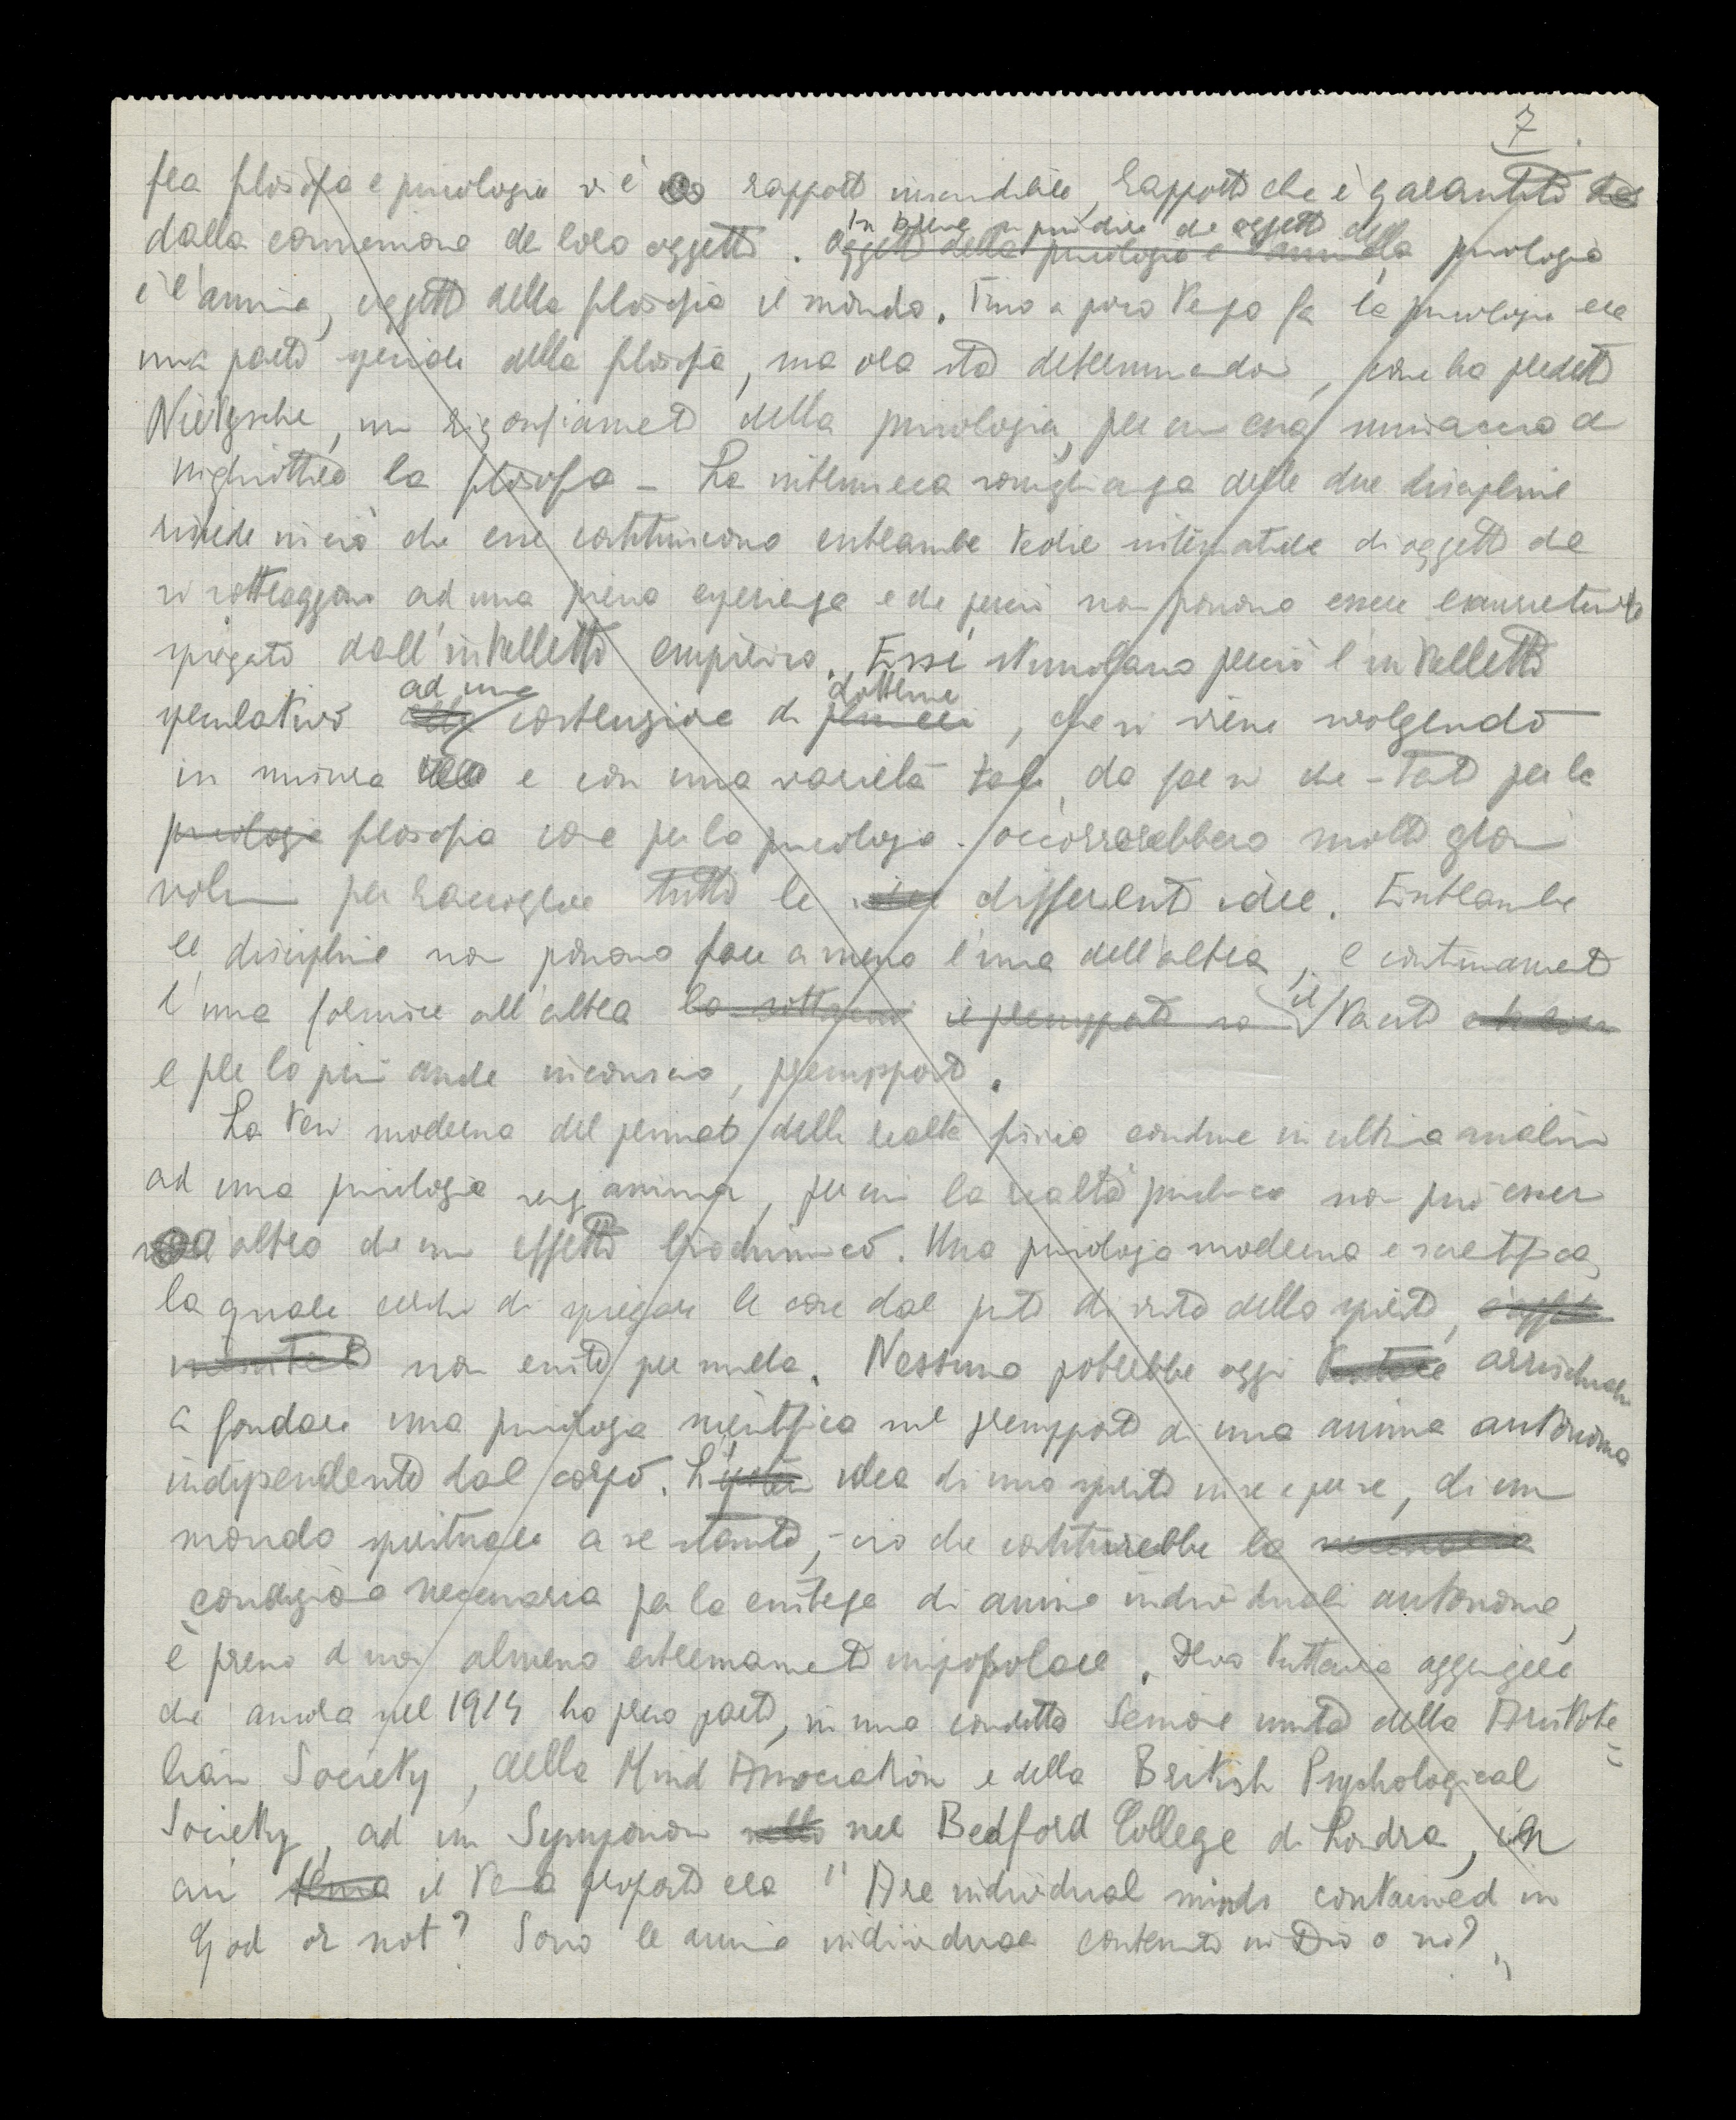 7.
fra filosofia e psicologia vi è un rapporto inscindibile, rapporto che è garantito
dalla connessione dei loro oggetti. Oggetto della psicologia è l'anima
in breve si può dire che oggetto della psicologia
è l'anima, oggetto della filosofia il mondo. Fino a poco tempo fa la psicologia era
una parte speciale della filosofia, ma ora sta determinandosi, come ha predetto
Nietzsche, un rigonfiamento della psicologia, per cui essa minaccia di
inghiottire la filosofia - La intrinseca somiglianza delle due discipline
risiede in ciò che esse costituiscono entrambe teorie sistematiche di oggetti che
si sottraggono ad una piena esperienza e che perciò non possono essere esaurientemente
spiegati dall'intelletto empirico. Essi stimolano perciò l'intelletto
speculativo ad una costruzione di dottrine, che si viene svolgendo
in misura e con una varietà tale, da far sì che - tanto per la
psicologia filosofia come per la psicologia - occorrerebbero molti grossi
volumi per raccogliere tutte le differenti idee. Entrambe
le discipline non possono fare a meno l'una dell'altra, e continuamente
l'una fornisce all'altra il presupposto il tacito
e per lo più anche inconscio, presupposto.
La tesi moderna del primato della realtà fisica conduce in ultima analisi
ad una psicologia senz'anima, per cui la realtà psichica non può esser
altro che un effetto biochimico. Una psicologia moderna e scientifica,
la quale cerchi di spiegare le cose dal punto di vista dello spirito,
non esiste per nulla. Nessuno potrebbe oggi tentare arrischiarsi
a fondare una psicologia scientifica sul presupposto di una anima autonoma
indipendente dal corpo. L'idea di uno spirito in se e per se, di un
mondo spirituale a se stante, - ciò che costituirebbe la
condizione necessaria per la esistenza di anime individuali autonome,
è presso di noi almeno estremamente impopolare. Devo tuttavia aggiungere
che ancora nel 1914 ho preso parte, in una cosidetta Sessione unita della Aristote=
lian Society, della Mind Association e della British Psychological
Society, ad un Symposion nel Bedford College di Londra, in
cui il tema proposto era "Are individual minds contained in
God or not? Sono le anime individuali contenute in Dio o no?"